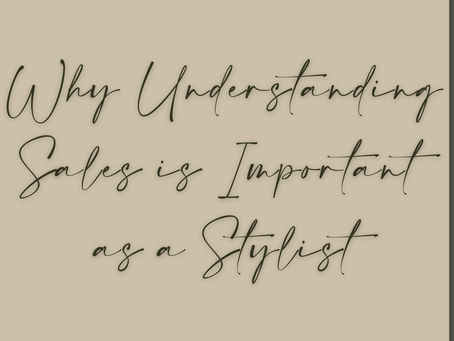 Why Understanding
Sales is Important
as a Stylist